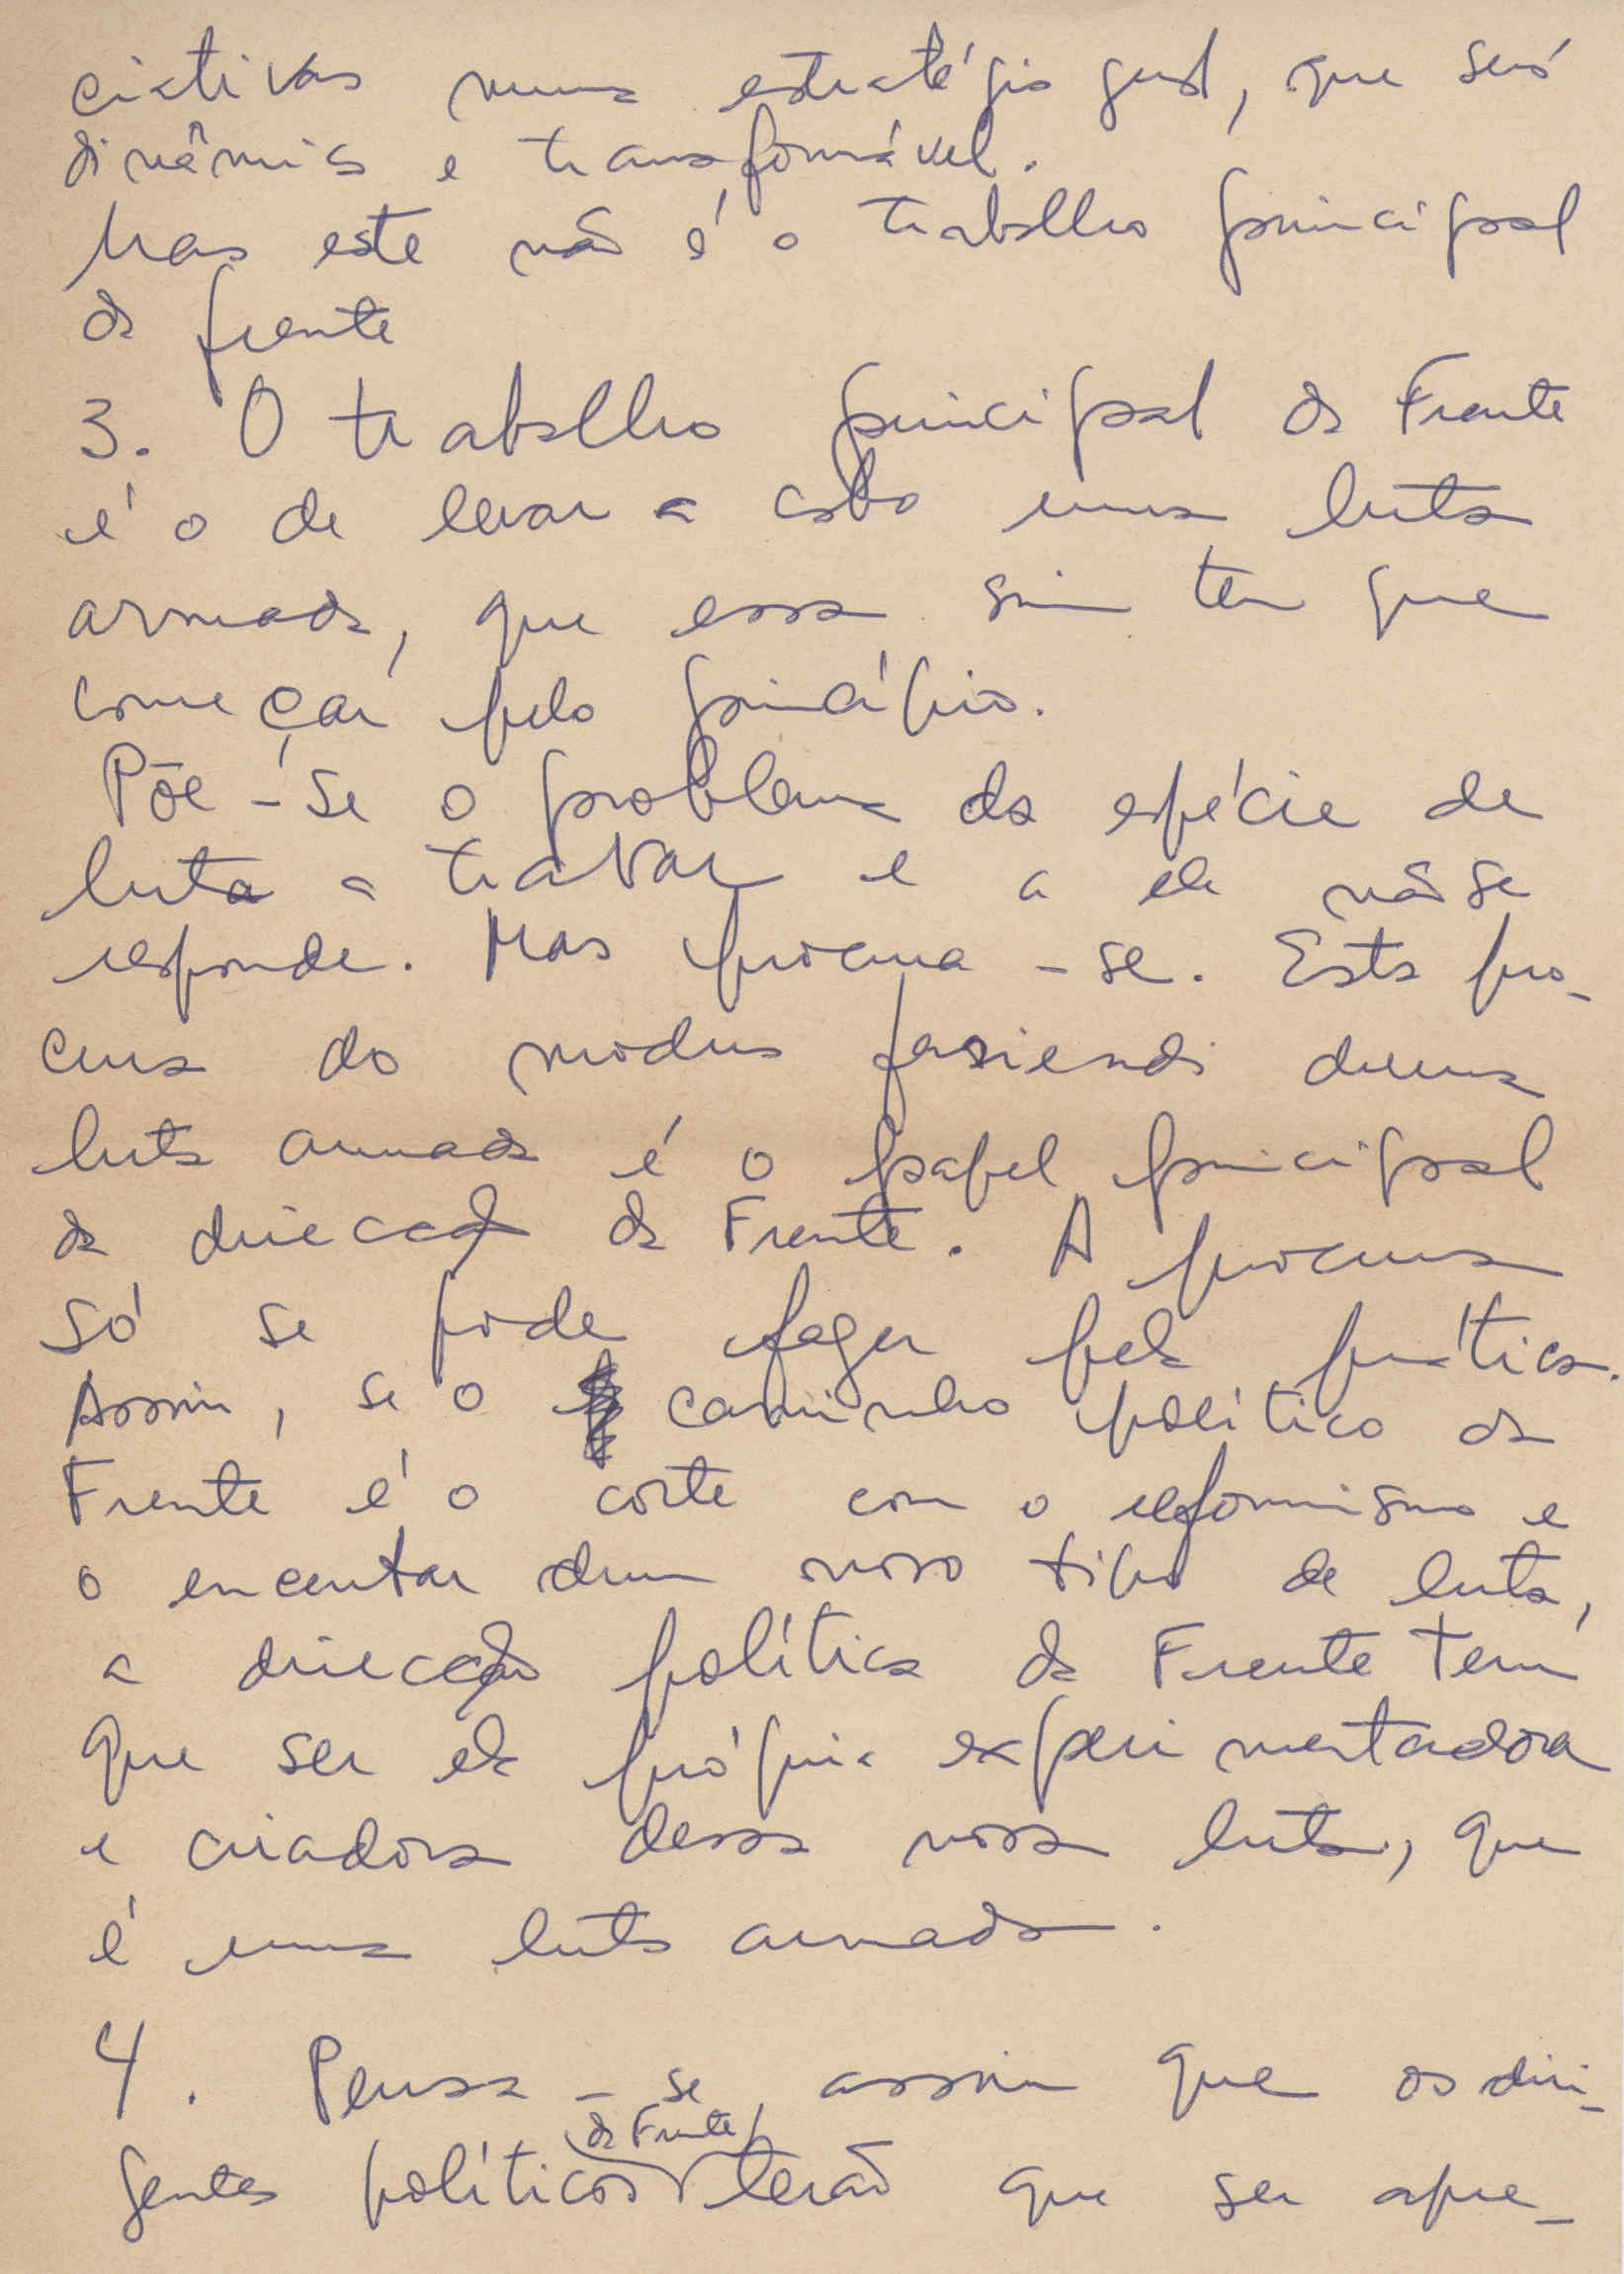 ciativas numa estratégia geral, que será
dinâmica e transformável.
Mas este não é o trabalho principal
da frente
3. O trabalho principal da Frente
é o de levar a cabo uma luta
armada, que essa sim tem que
começar pelo princípio.
Põe-se o problema da espécie de
luta a travar e a ele não se
responde. Mas procura-se. Esta pro-
cura do modus fasiendi duma
luta armada é o papel principal
da direcção da Frente. A procura
só se pode fazer pela prática.
Assim, se o caminho político da
Frente é o corte com o reformismo e
o encentar dum novo tipo de luta,
a direcção política da Frente tem
que ser ela própria experimentadora
e criadora dessa nova luta, que
é uma luta armada.
4. Pensa-se assim que os diri-
gentes políticos da Frente terão que ser apre-